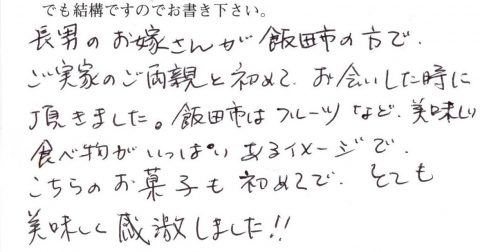 でも結構ですのでお書き下さい。
長男のお嫁さんが飯田市の方で、
ご実家のご両親と初めて、お会いした時に
頂きました。飯田市はフルーツなど、美味しい
食べ物がいっぱいあるイメージで、
こちらのお菓子も初めてで、とても
美味しく感激しました!!